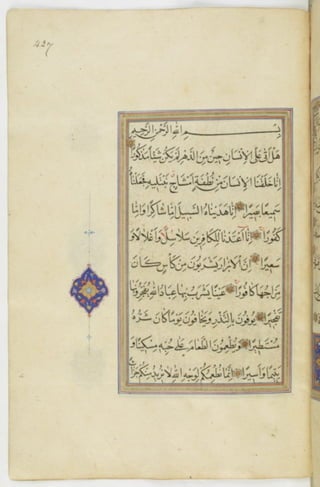 437
بسم الله الرحمن الرحيم
هل اتى على الانسان حين من الدهر لم يكن شيئا مذكورا
انا خلقنا الانسان من نطفة امشاج نبتليه فجعلناه
سميعا بصيرا انا هديناه السبيل اما شاكرا واما
كفورا انا اعتدنا للكافرين سلاسل واغلالا و
سعيرا ان الابرار يشربون من كأس كان
مزاجها كافورا عينا يشرب بها عباد الله يفجرونها
تفجيرا يوفون بالنذر ويخافون يوما كان شره
مستطيرا ويطعمون الطعام على حبه مسكينا و
يتيما واسيرا انما نطعمكم لوجه الله لا نريد منكم جزاء